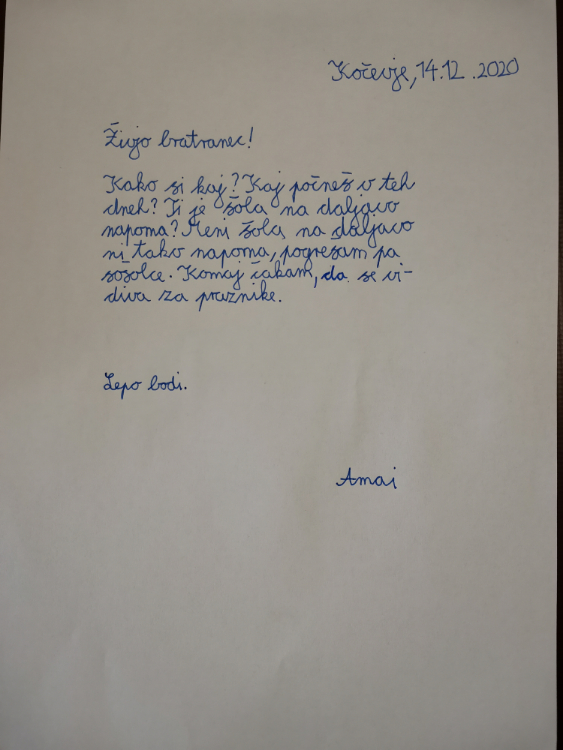 Kočevje, 14.12.2020
Živjo bratranec!
Kako si kaj? Kaj počneš v teh
dneh? Ti je šola na daljavo
naporna? Meni šola na daljavo
ni tako naporna, pogrešam pa
sošolce. Komaj čakam, da se vi-
diva za praznike.
Lepo bodi.